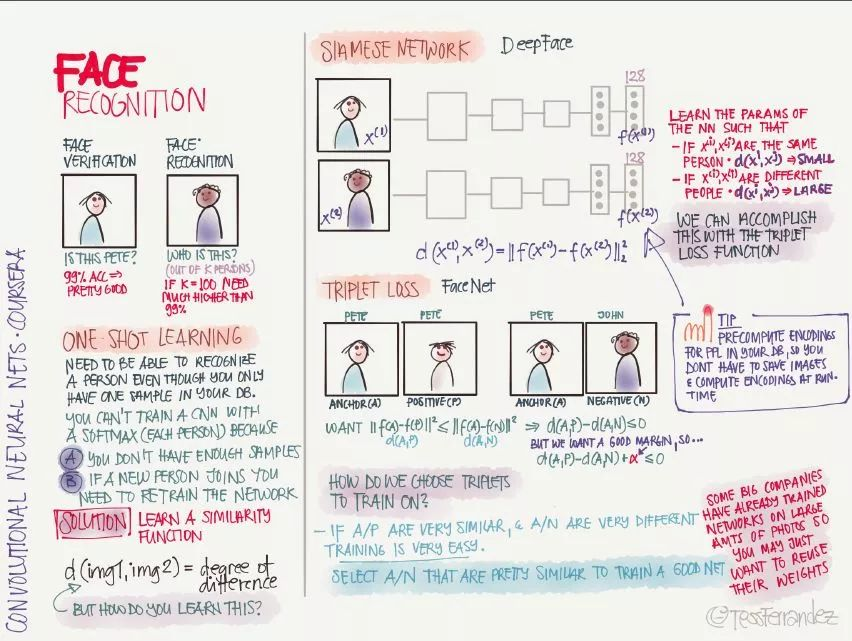 CONVOLUTIONAL NEURAL NETS · COURSERA
FACE
RECOGNITION
FACE
VERIFICATION
IS THIS PETE?
99% ACC ⇒
PRETTY GOOD
FACE·
RECOGNITION
WHO IS THIS?
(OUT OF K PERSONS)
IF K = 100 NEED
MUCH HIGHER THAN
99%
ONE SHOT LEARNING
NEED TO BE ABLE TO RECOGNIZE
A PERSON EVEN THOUGH YOU ONLY
HAVE ONE SAMPLE IN YOUR DB.
YOU CAN'T TRAIN A CNN WITH
A SOFTMAX (EACH PERSON) BECAUSE
A YOU DON'T HAVE ENOUGH SAMPLES
B IF A NEW PERSON JOINS YOU
NEED TO RETRAIN THE NETWORK
SOLUTION LEARN A SIMILARITY
FUNCTION
d(img1, img2) = degree of
difference
BUT HOW DO YOU LEARN THIS?
SIAMESE NETWORK DEEPFACE
x⁽¹⁾
128
f(x⁽¹⁾)
x⁽²⁾
128
f(x⁽²⁾)
d(x⁽¹⁾, x⁽²⁾) = ‖f(x⁽¹⁾) - f(x⁽²⁾)‖₂²
LEARN THE PARAMS OF
THE NN SUCH THAT
- IF x⁽ⁱ⁾, x⁽ʲ⁾ ARE THE SAME
PERSON · d(xⁱ, xʲ) ⇒ SMALL
- IF x⁽ⁱ⁾, x⁽ʲ⁾ ARE DIFFERENT
PEOPLE · d(xⁱ, xʲ) ⇒ LARGE
WE CAN ACCOMPLISH
THIS WITH THE TRIPLET
LOSS FUNCTION
TIP
PRECOMPUTE ENCODINGS
FOR PPL IN YOUR DB, SO YOU
DONT HAVE TO SAVE IMAGES
& COMPUTE ENCODINGS AT RUN-
TIME
TRIPLET LOSS FaceNet
PETE PETE PETE JOHN
ANCHOR(A) POSITIVE(P) ANCHOR(A) NEGATIVE(N)
WANT ‖f(A)-f(P)‖² ≤ ‖f(A)-f(N)‖² ⇒ d(A,P) - d(A,N) ≤ 0
d(A,P) d(A,N)
BUT WE WANT A GOOD MARGIN, SO...
d(A,P) - d(A,N) + α ≤ 0
HOW DO WE CHOOSE TRIPLETS
TO TRAIN ON?
- IF A/P ARE VERY SIMILAR, & A/N ARE VERY DIFFERENT
TRAINING IS VERY EASY.
SELECT A/N THAT ARE PRETTY SIMILAR TO TRAIN A GOOD NET
SOME BIG COMPANIES
HAVE ALREADY TRAINED
NETWORKS ON LARGE
AMTS OF PHOTOS SO
YOU MAY JUST
WANT TO REUSE
THEIR WEIGHTS
@TessFerrandez